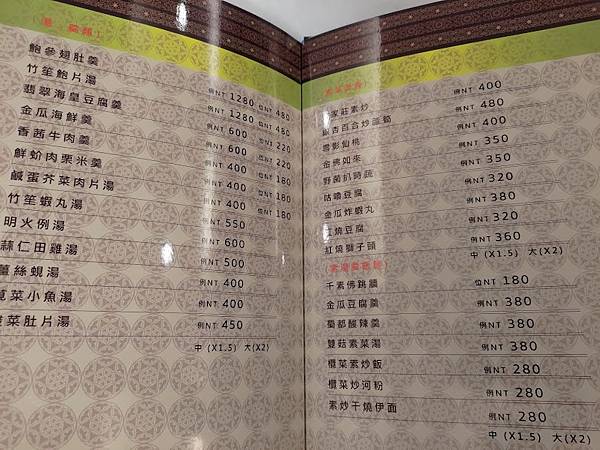 (湯、羹類)
鮑參翅肚羹 例NT 1280 位NT 480
竹笙鮑片湯 例NT 1280 位NT 480
翡翠海皇豆腐羹 例NT 600 位NT 220
金瓜海鮮羹 例NT 600 位NT 220
香茜牛肉羹 例NT 400 位NT 180
鮮蚧肉栗米羹 例NT 400 位NT 180
鹹蛋芥菜肉片湯 例NT 400 位NT 180
竹笙蝦丸湯 例NT 550
明火例湯 例NT 600
蒜仁田雞湯 例NT 500
薑絲蜆湯 例NT 400
莧菜小魚湯 例NT 400
菜肚片湯 例NT 450
中 (X1.5) 大(X2)
家莊素炒 例NT 400
銀杏百合炒蘆筍 例NT 480
雪影仙桃 例NT 400
金佛如來 例NT 350
野菌扒時蔬 例NT 350
咕嚕豆腐 例NT 320
金瓜炸蝦丸 例NT 380
紅燒豆腐 例NT 320
紅燒獅子頭 例NT 360
中 (X1.5) 大(X2)
千素佛跳牆 位NT 180
金瓜豆腐羹 例NT 380
蜀都酸辣羹 例NT 380
雙菇素菜湯 例NT 380
欖菜素炒飯 例NT 280
欖菜炒河粉 例NT 280
素炒干燒伊面 例NT 280
中 (X1.5) 大(X2)